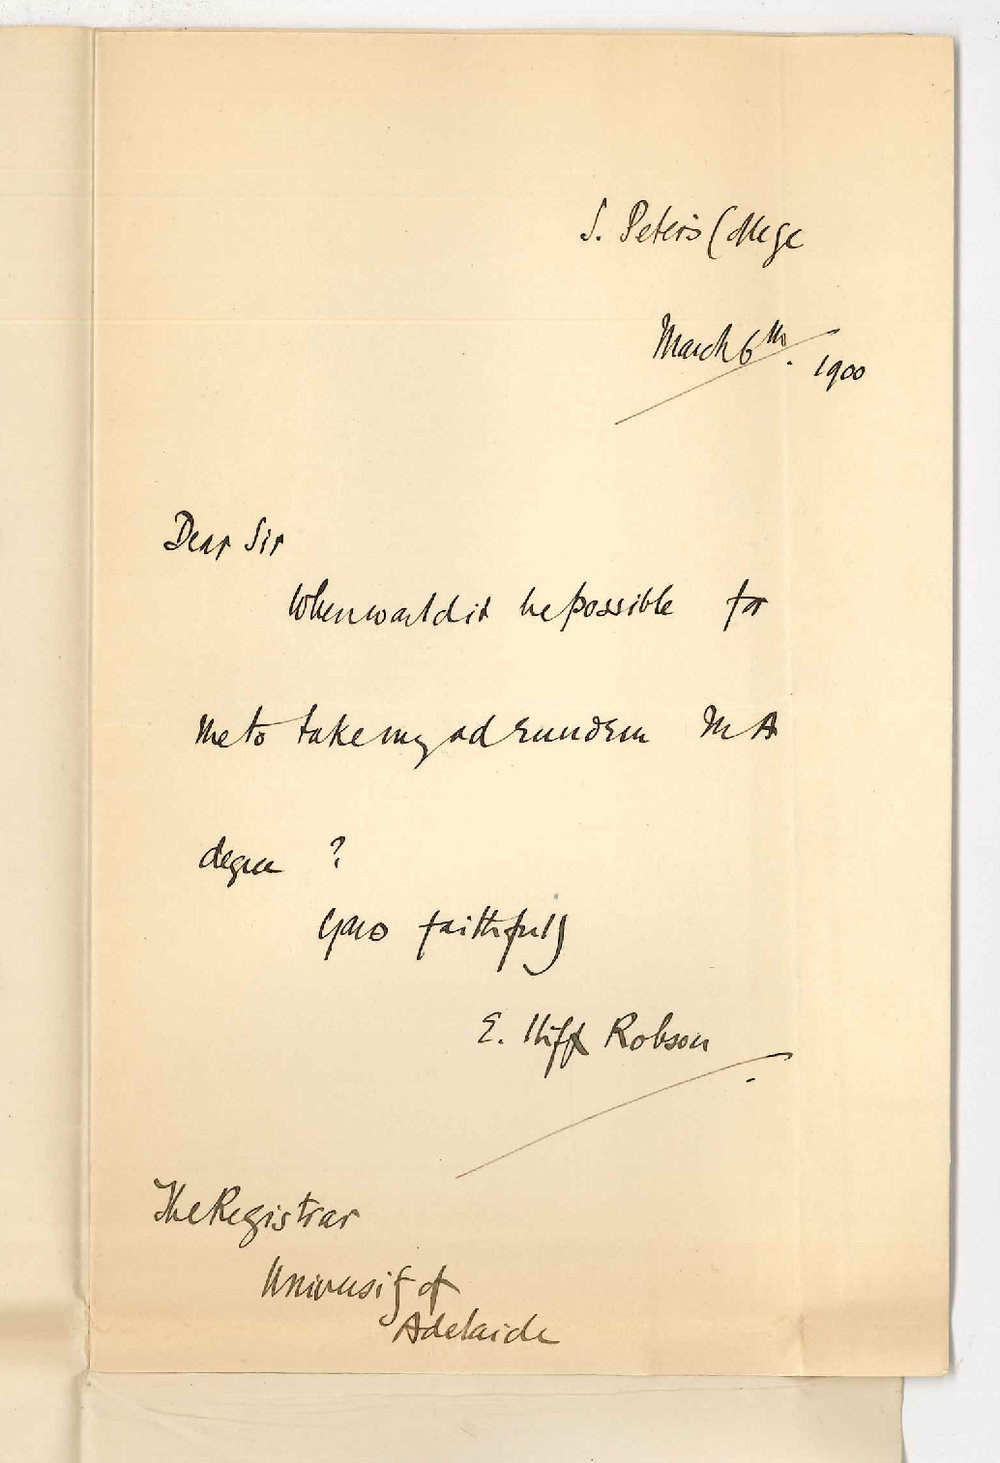 S. Peter's College
March 6th. 1900
Dear Sir
When would it be possible for
me to take my ad eundem M A
degree ?
Yrs faithfully
E. Iliff Robson
The Registrar
University of
Adelaide